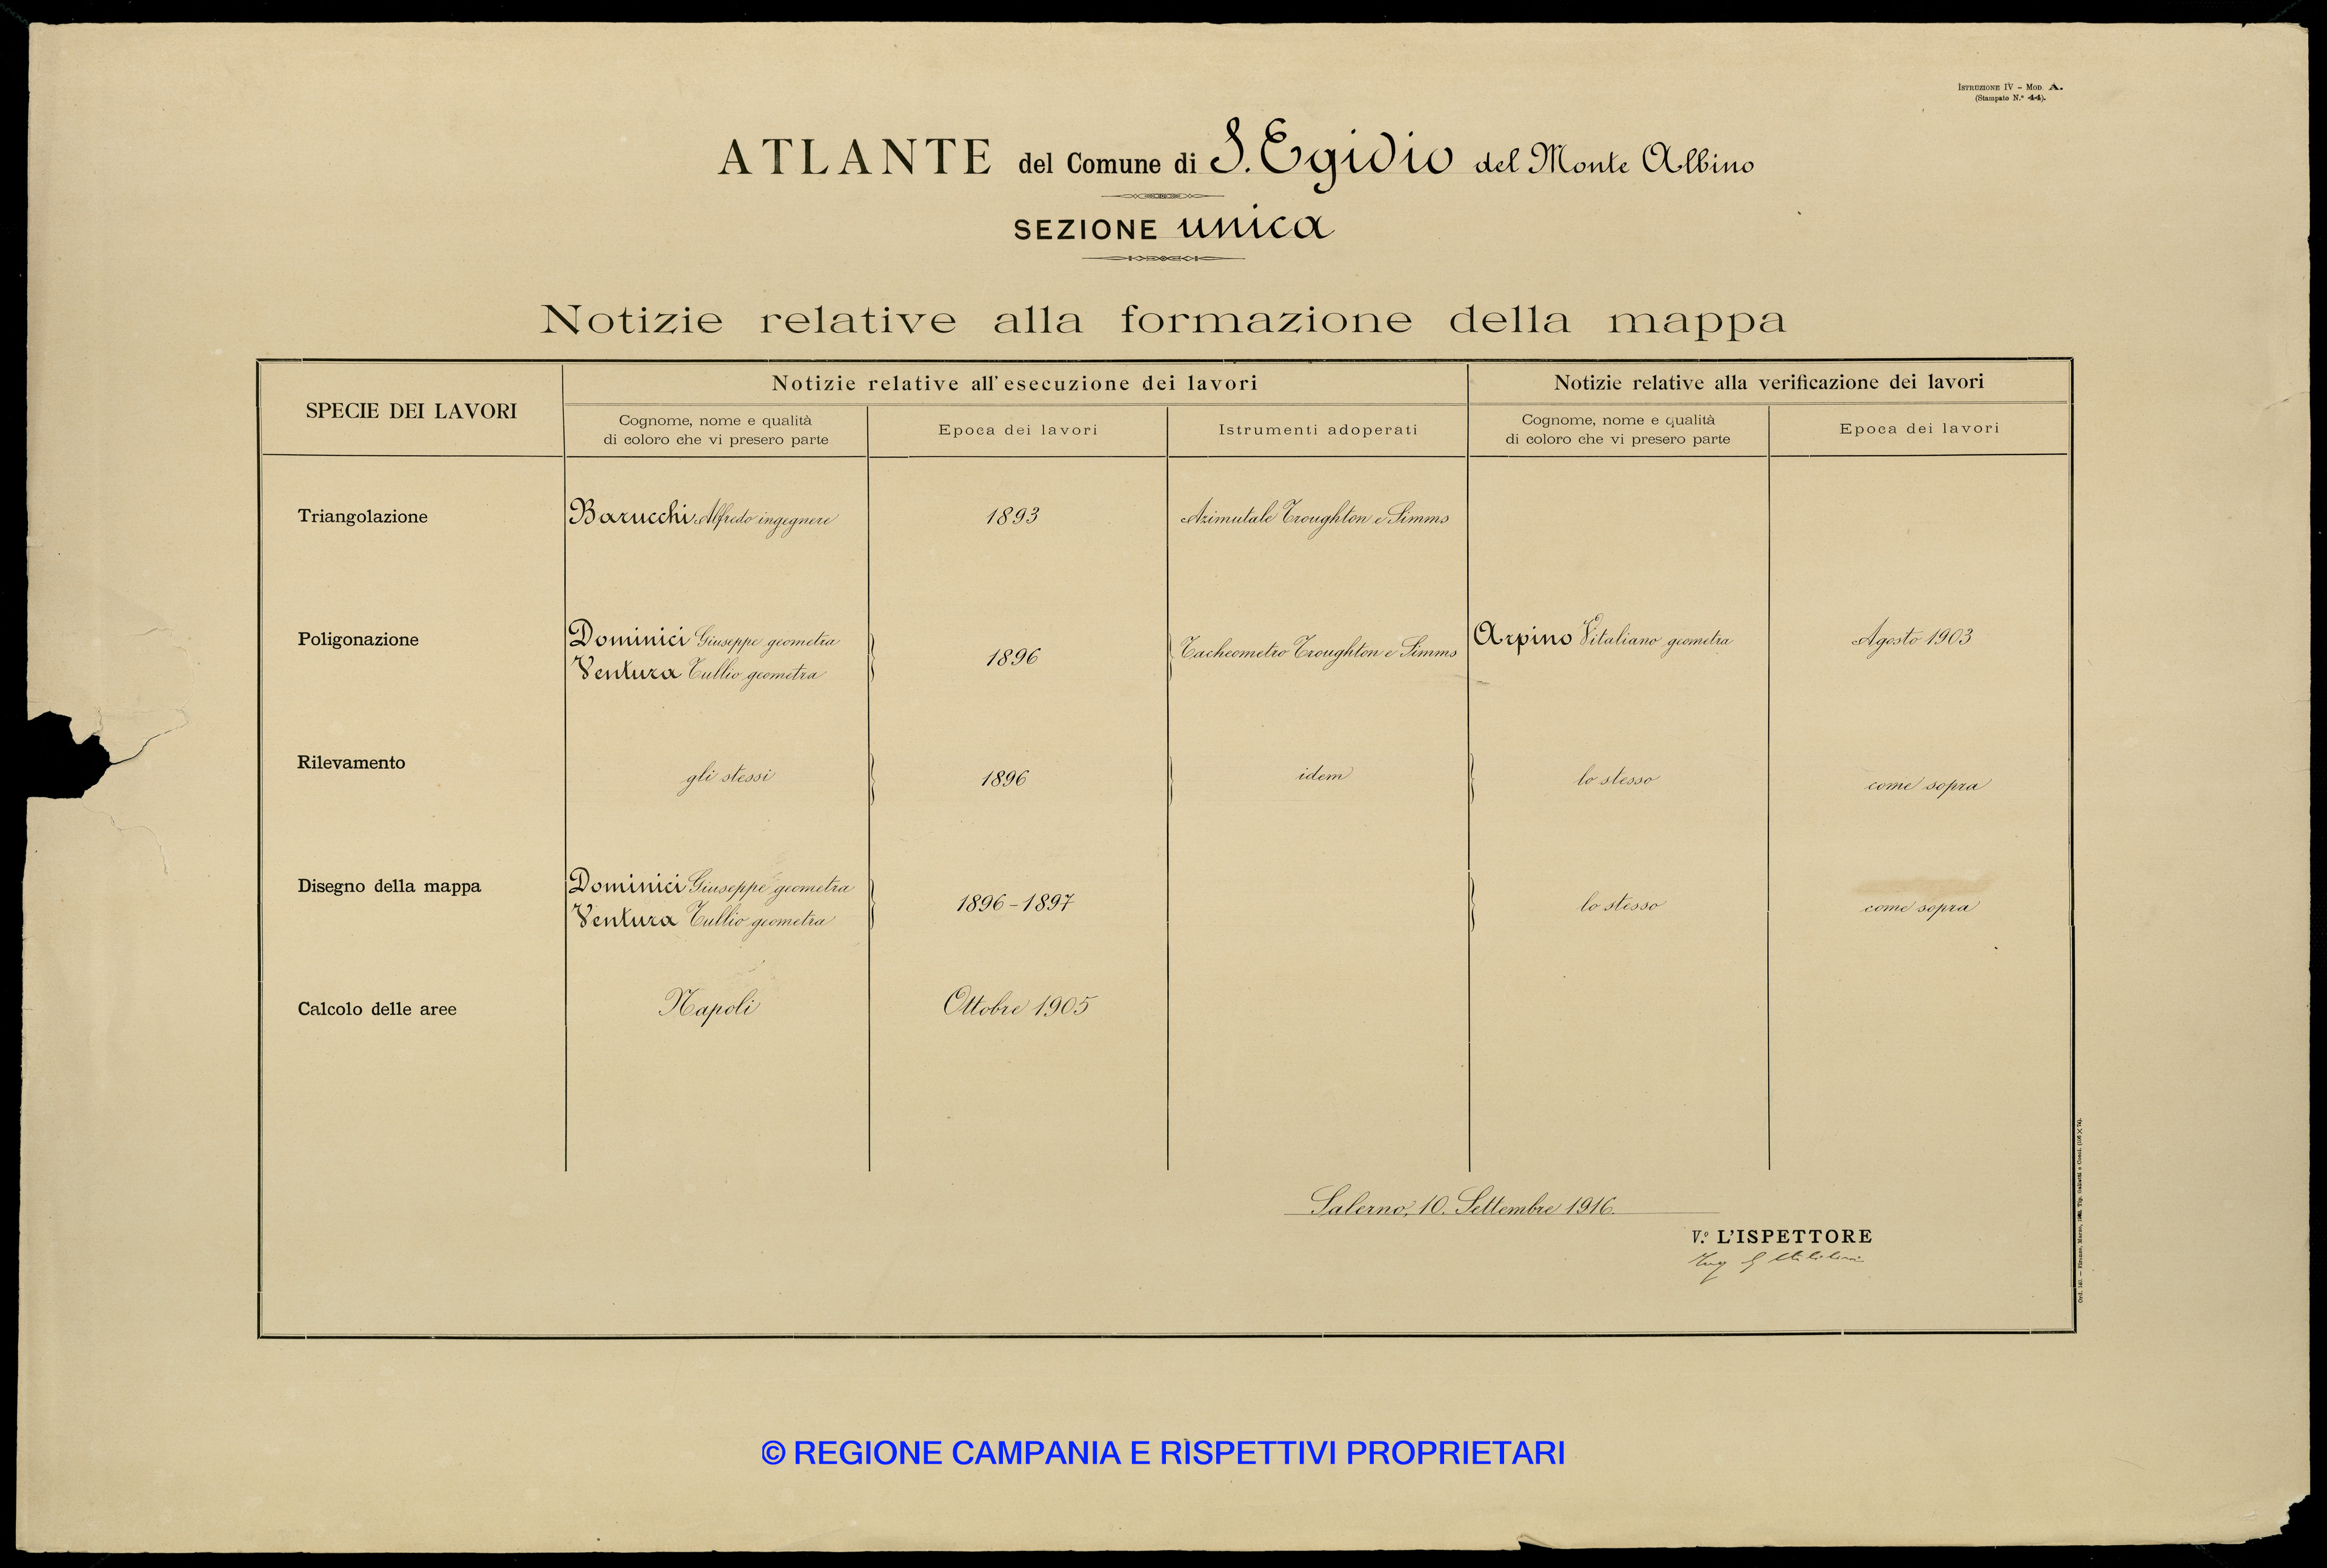 ISTRUZIONE IV – MOD. A.
(Stampato N.° 44).
ATLANTE del Comune di S. Egidio del Monte Albino
SEZIONE unica
Notizie relative alla formazione della mappa
SPECIE DEI LAVORI
Notizie relative all'esecuzione dei lavori
Notizie relative alla verificazione dei lavori
Cognome, nome e qualità
di coloro che vi presero parte
Epoca dei lavori
Istrumenti adoperati
Cognome, nome e qualità
di coloro che vi presero parte
Epoca dei lavori
Triangolazione
Barucchi Alfredo ingegnere
1893
Azimutale Troughton e Simms
Poligonazione
Dominici Giuseppe geometra
Ventura Tullio geometra
1896
Tacheometro Troughton e Simms
Arpino Vitaliano geometra
Agosto 1903
Rilevamento
gli stessi
1896
idem
lo stesso
come sopra
Disegno della mappa
Dominici Giuseppe geometra
Ventura Tullio geometra
1896-1897
lo stesso
come sopra
Calcolo delle aree
Napoli
Ottobre 1905
Salerno, 10. Settembre 1916.
V.° L'ISPETTORE
© REGIONE CAMPANIA E RISPETTIVI PROPRIETARI